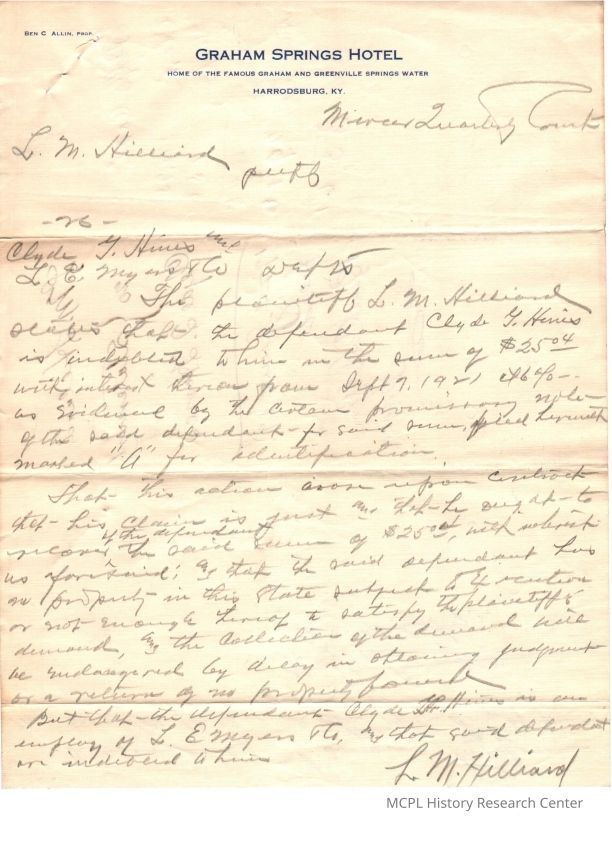 BEN C ALLIN, PROP.
GRAHAM SPRINGS HOTEL
HOME OF THE FAMOUS GRAHAM AND GREENVILLE SPRINGS WATER
HARRODSBURG, KY.
Mercer Quarterly Court
L. M. Hilliard
pltff
-vs-
Clyde G. Hines and
L. E. Myers & Co Defts
The plaintiff L. M. Hilliard
states that the defendant Clyde G. Hines
is indebted to him in the sum of $25.04
with interest thereon from Sept 7, 1921 at 6%
as evidenced by the certain promissory note
of the said defendant for said sum, filed herewith
marked "A" for identification.
That this action arose upon contract
that his claim is just and that he ought to
of the defendant
recover the said sum of $25.04, with interest
as aforesaid; and that the said defendant has
no property in this State subject to execution
or not enough thereof to satisfy the plaintiff's
demand, and the collection of the demand will
be endangered by delay in obtaining judgment
or a return of no property found
But that the defendant Clyde G. Hines is an
employ of L. E Myers & Co, and that said defendant
are indebted to him
L. M. Hilliard
MCPL History Research Center